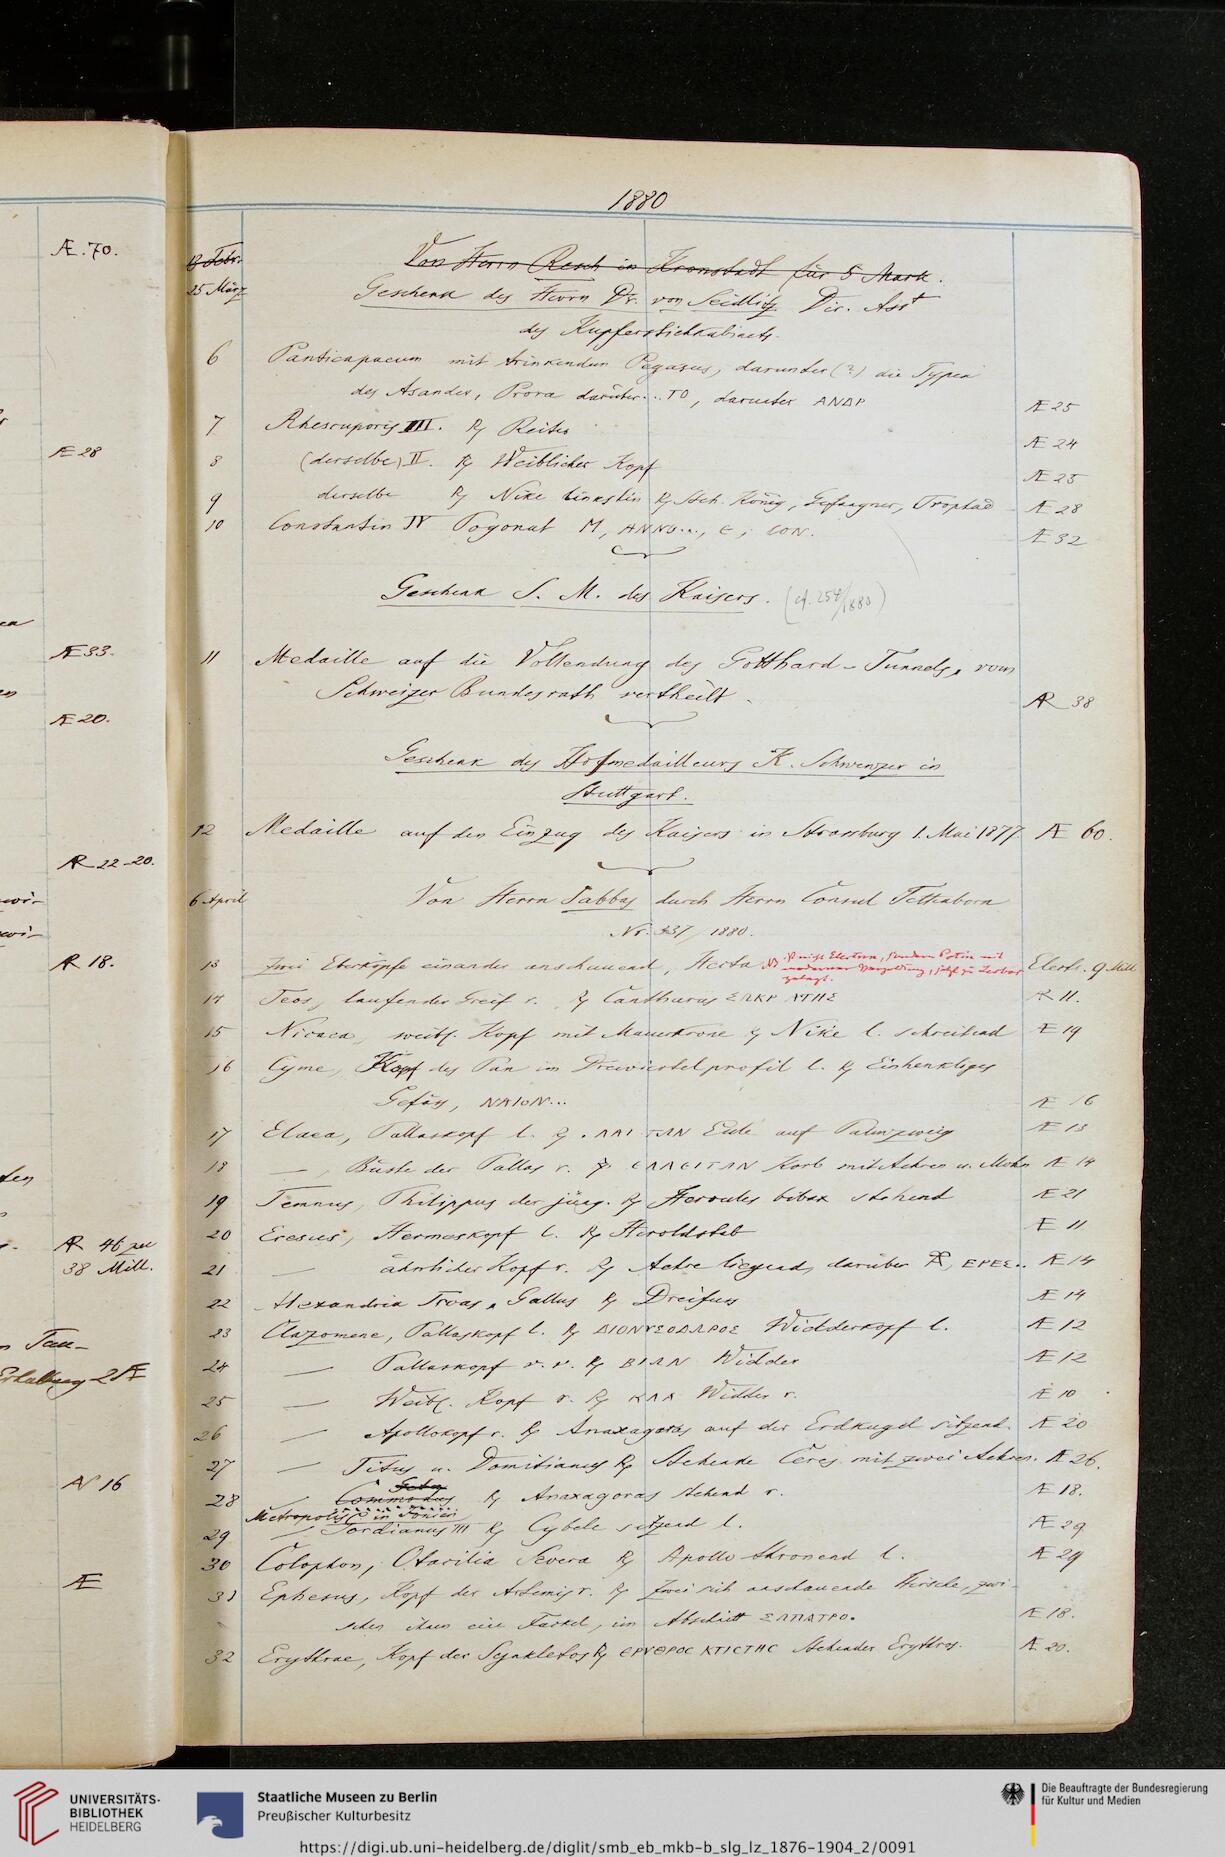 1880
Æ.70.
Æ 28
Æ 33.
Æ 20.
AR 22-20.
AR 18.
AR 46 zu
38 Mill.
AV 16
Æ
18 Febr.
Von Herrn Resch in Kronstadt für 5 Mark.
25 März
Geschenk des Herrn Dr. von Seidlitz Dir. Asst
des Kupferstichkabinets.
6 Panticapaeum mit trinkendem Pegasus, darunter (?) die Typen
des Asander, Prora darüber... TO, darunter ANΔΡ Æ 25
7 Rhescuporis III. Rs Reiter Æ 24
8 (derselbe) II. Rs Weiblicher Kopf Æ 25
9 derselbe Rs Nike Rs Steh. König, Gefangner, Trophäe Æ 28
10 Constantin IV Pogonat M, ANNO..., Є, CON. Æ 32
Geschenk S. M. des Kaisers. (cf. 254/1880)
11 Medaille auf die Vollendung des Gotthard-Tunnels, vom
Schweizer Bundesrath vertheilt. AR 38
Geschenk des Hofmedailleurs K. Schwenzer in
Stuttgart.
12 Medaille auf den Einzug des Kaisers in Strassburg 1. Mai 1877. Æ 60.
6 April
Von Herrn Sabbas durch Herrn Consul Tettenborn
Nr. 337/1880.
13 Zwei Eberköpfe einander anschauend, Hecta Electr. 9 Mill.
NB. nicht Electron, sondern Potin mit
moderner Vergoldung, jetzt zu Lesbos
gelegt.
14 Teos, laufender Greif r. Rs Cantharus ΣΩΚΡΑΤΗΣ AR 11.
15 Nicaea, weibl. Kopf mit Mauerkrone Rs Nike l. schreibend Æ 19
16 Cyme, Kopf des Pan im Dreiviertelprofil l. Rs Einhenkliges
Gefäss, ΝΑΙΟΝ... Æ 16
17 Elaea, Pallaskopf l. Rs .ΛΑΙΤΩΝ Eule auf Palmzweig Æ 13
18 — , Büste der Pallas r. Rs ЄΛΑЄΙΤΩΝ Korb mit Aehren u. Mohn Æ 14
19 Temnus, Philippus der jüng. Rs Hercules bibax stehend Æ 21
20 Eresus, Hermeskopf l. Rs Heroldstab Æ 11
21 — ähnlicher Kopf r. Rs Aehre liegend, darüber, ΕΡΕΣ.. Æ 14
22 Alexandria Troas, Gallus Rs Dreifuss Æ 14
23 Clazomene, Pallaskopf l. Rs ΔΙΟΝΥΣΟΔΩΡΟΣ Widderkopf l. Æ 12
24 — Pallaskopf v. v. Rs ΒΙΩΝ Widder Æ 12
25 — Weibl. Kopf r. Rs ΚΛΑ Widder r. Æ 10
26 — Apollokopf r. Rs Anaxagoras auf der Erdkugel sitzend. Æ 20
27 — Titus u. Domitianus Rs Stehende Ceres mit zwei Aehren. Æ 26.
Geta
28 — Commodus Rs Anaxagoras stehend r. Æ 18.
Metropolis in Ionien
29 — Gordianus III Rs Cybele sitzend l. Æ 29
30 Colophon, Otacilia Severa Rs Apollo thronend l. Æ 29
31 Ephesus, Kopf der Artemis r. Rs Zwei sich anschauende Hirsche, zwi-
schen ihnen eine Fackel, im Abschnitt ΣΩΠΑΤΡΟ. Æ 18.
32 Erythrae, Kopf der Synkletos Rs ЄΡΥΘΡΟC ΚΤΙCΤΗC stehender Erythros. Æ 20.
UNIVERSITÄTS-
BIBLIOTHEK
HEIDELBERG
Staatliche Museen zu Berlin
Preußischer Kulturbesitz
Die Beauftragte der Bundesregierung
für Kultur und Medien
https://digi.ub.uni-heidelberg.de/diglit/smb_eb_mkb-b_slg_lz_1876-1904_2/0091